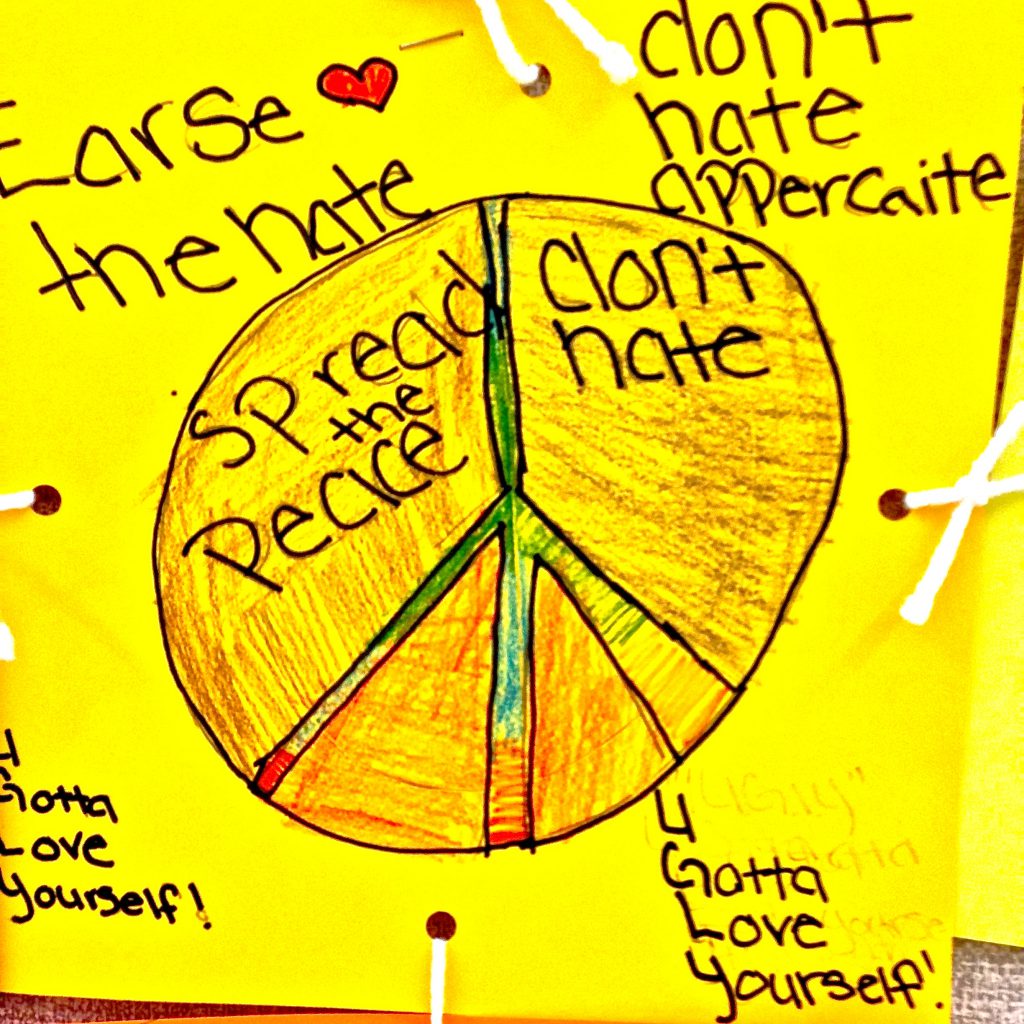 Earse
the hate
don't
hate
appercaite
Spread
the
peace
don't
hate
U
Gotta
Love
yourself!
U
Gotta
Love
yourself!